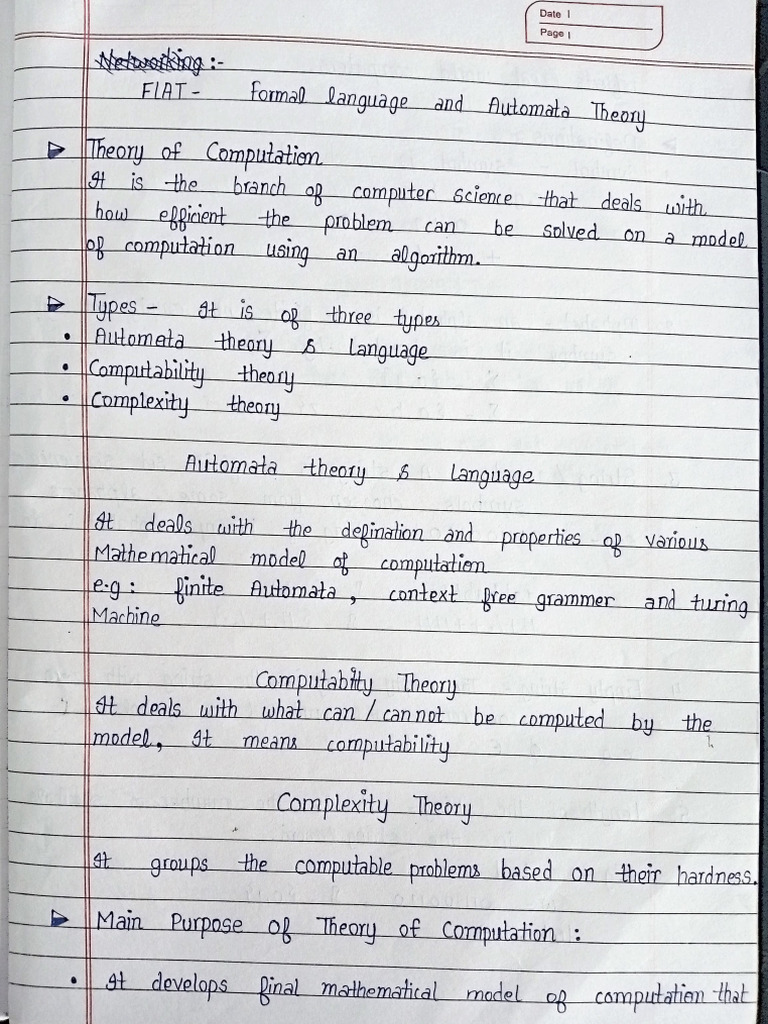 Date
Page
Networking :-
FLAT - Formal language and Automata Theory
Theory of Computation
It is the branch of computer science that deals with
how efficient the problem can be solved on a model
of computation using an algorithm.
Types - It is of three types
• Autometa theory & language
• Computability theory
• Complexity theory
Automata theory & Language
It deals with the defination and properties of various
Mathematical model of computation
e-g : finite Automata, context free grammer and turing
Machine
Computabity Theory
It deals with what can / cannot be computed by the
model, It means computability
Complexity Theory
It groups the computable problems based on their hardness.
Main Purpose of Theory of Computation :
• It develops final mathematical model of computation that